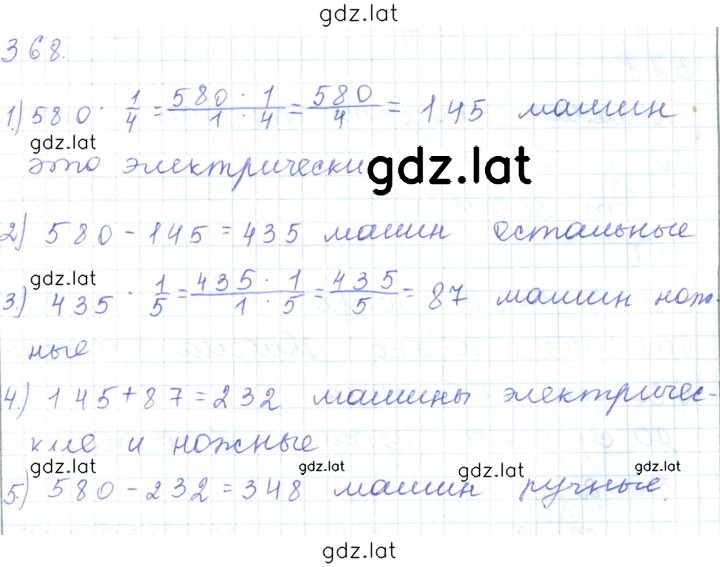 gdz.lat
368.
1.) 580 · 1/4 = 580 · 1 / 1 · 4 = 580/4 = 145 машин
gdz.lat
это электрически
gdz.lat
2) 580 - 145 = 435 машин остальные
gdz.lat
3.) 435 · 1/5 = 435 · 1 / 1 · 5 = 435/5 = 87 машин нож-
ные
4.) 145 + 87 = 232 машины электричес-
кие и ножные
gdz.lat gdz.lat gdz.lat gdz.lat
5.) 580 - 232 = 348 машин ручные.
gdz.lat